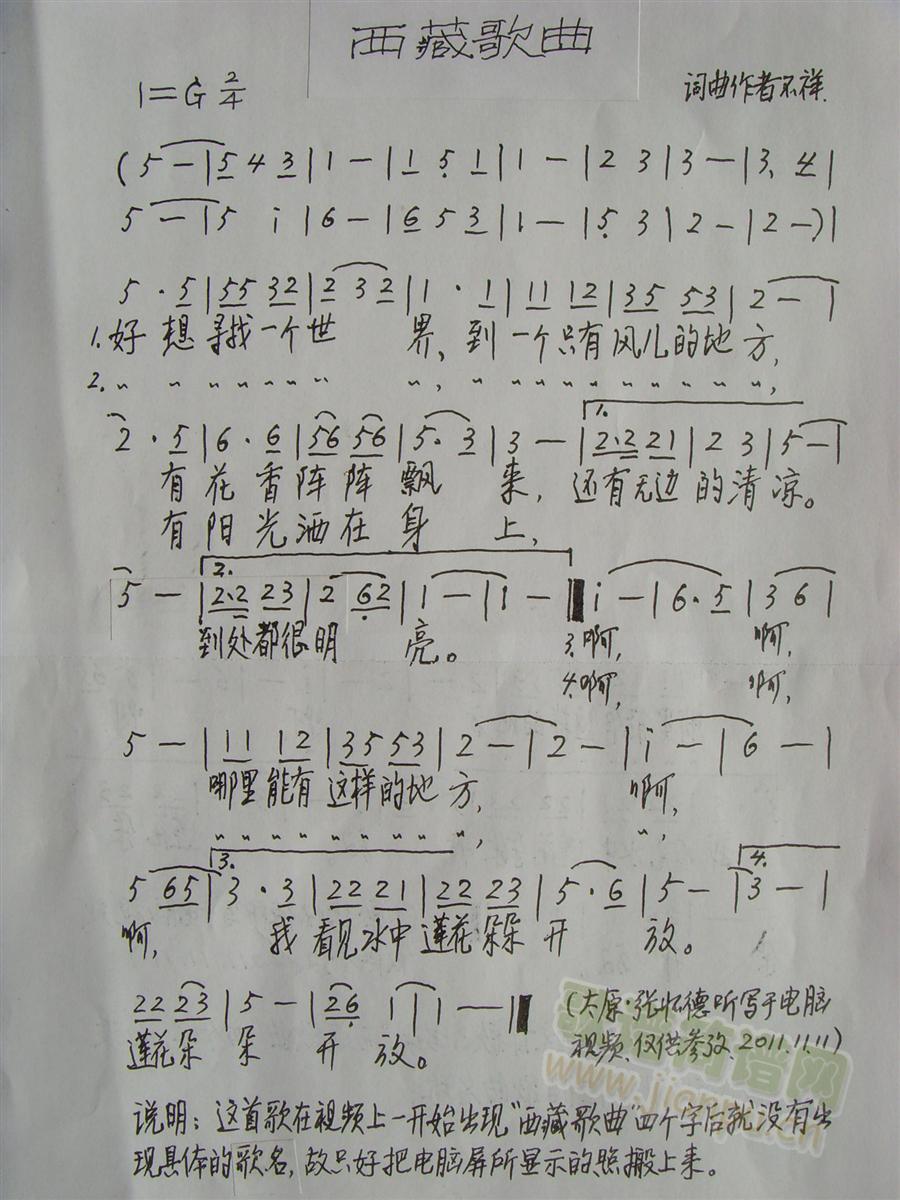 西藏歌曲
1=G 2/4
词曲作者不祥.
(5 — | 5 4 3 | 1 — | 1 5 1 | 1 — | 2 3 | 3 — | 3. 4 |
5 — | 5 i | 6 — | 6 5 3 | 1 — | 5 3 | 2 — | 2 —) |
5 · 5 | 55 32 | 2 3 2 | 1 · 1 | 11 12 | 35 53 | 2 — |
1.好想寻找一个世界,到一个只有风儿的地方,
2.〃 〃 〃 〃 〃 〃 〃 〃,〃 〃 〃 〃 〃 〃 〃 〃 〃 〃,
1.
2 · 5 | 6 · 6 | 56 56 | 5. 3 | 3 — | 2·2 21 | 2 3 | 5 — |
有花香阵阵飘来,还有无边的清凉。
有阳光洒在身上,
2.
5 — | 2·2 23 | 2 62 | 1 — | 1 — | i — | 6·5 | 3 6 |
到处都很明亮。 3.啊, 啊,
4.啊, 啊,
5 — | 11 12 | 35 53 | 2 — | 2 — | i — | 6 — |
哪里能有这样的地方, 啊,
〃 〃 〃 〃 〃 〃 〃 〃 〃, 〃,
3. 4.
5 65 | 3 · 3 | 22 21 | 22 23 | 5 · 6 | 5 — | 3 — |
啊, 我看见水中莲花朵朵开放。
22 23 | 5 — | 26 1 | 1 — ‖
莲花朵朵开放。
(太原·张怀德听写于电脑
视频、仅供参考、2011.11.11)
说明:这首歌在视频上一开始出现"西藏歌曲"四个字后就没有出
现具体的歌名,故只好把电脑屏所显示的照搬上来。